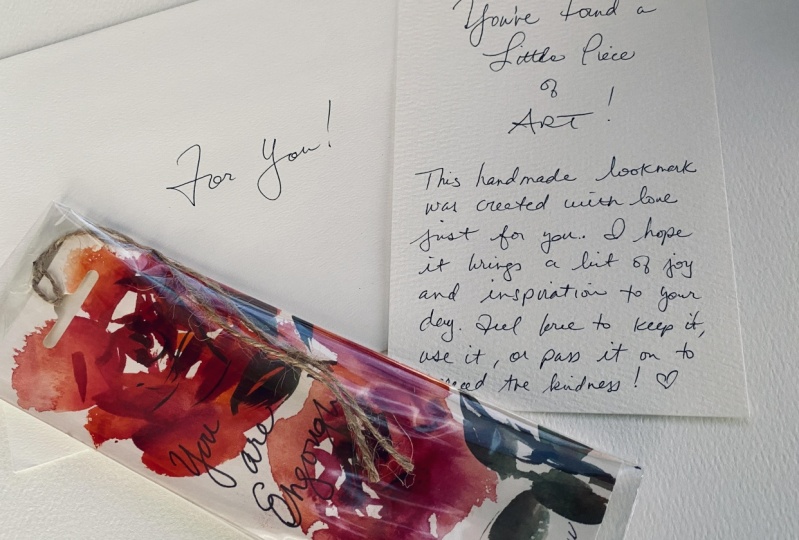 For You!
You're found a
Little Piece
of
ART!
This handmade bookmark
was created with love
just for you.. I hope
it brings a bit of joy
and inspiration to your
day. Feel free to keep it,
use it, or pass it on to
the kindness! ♡
You
are
Enough